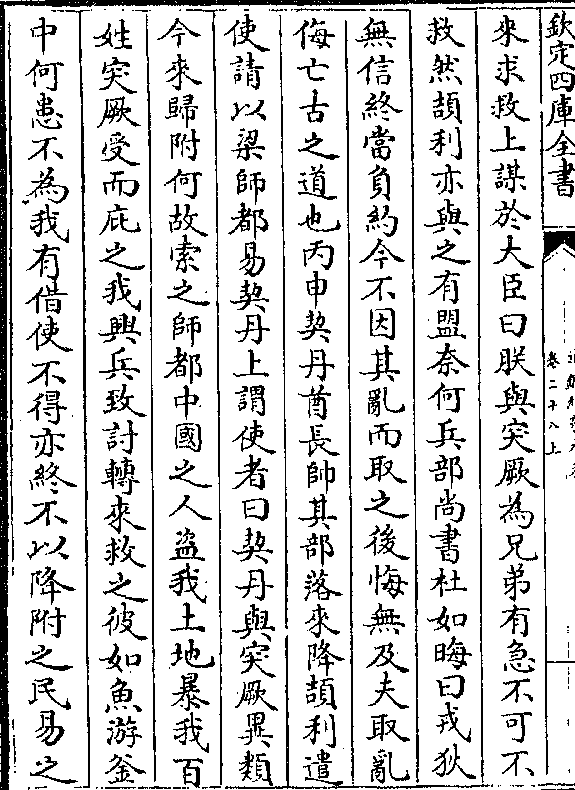 欽定四庫全書
卷二十八上
來求救上謀於大臣曰朕與突厥為兄弟有急不可不
救然頡利亦與之有盟奈何兵部尚書杜如晦曰戎狄
無信終當負約今不因其亂而取之後悔無及夫取亂
侮亡古之道也丙申契丹酋長帥其部落來降頡利遣
使請以梁師都易契丹上謂使者曰契丹與突厥異類
今來歸附何故索之師都中國之人盜我土地暴我百
姓突厥受而庇之我興兵致討轉來救之彼如魚游釜
中何患不為我有借使不得亦終不以降附之民易之